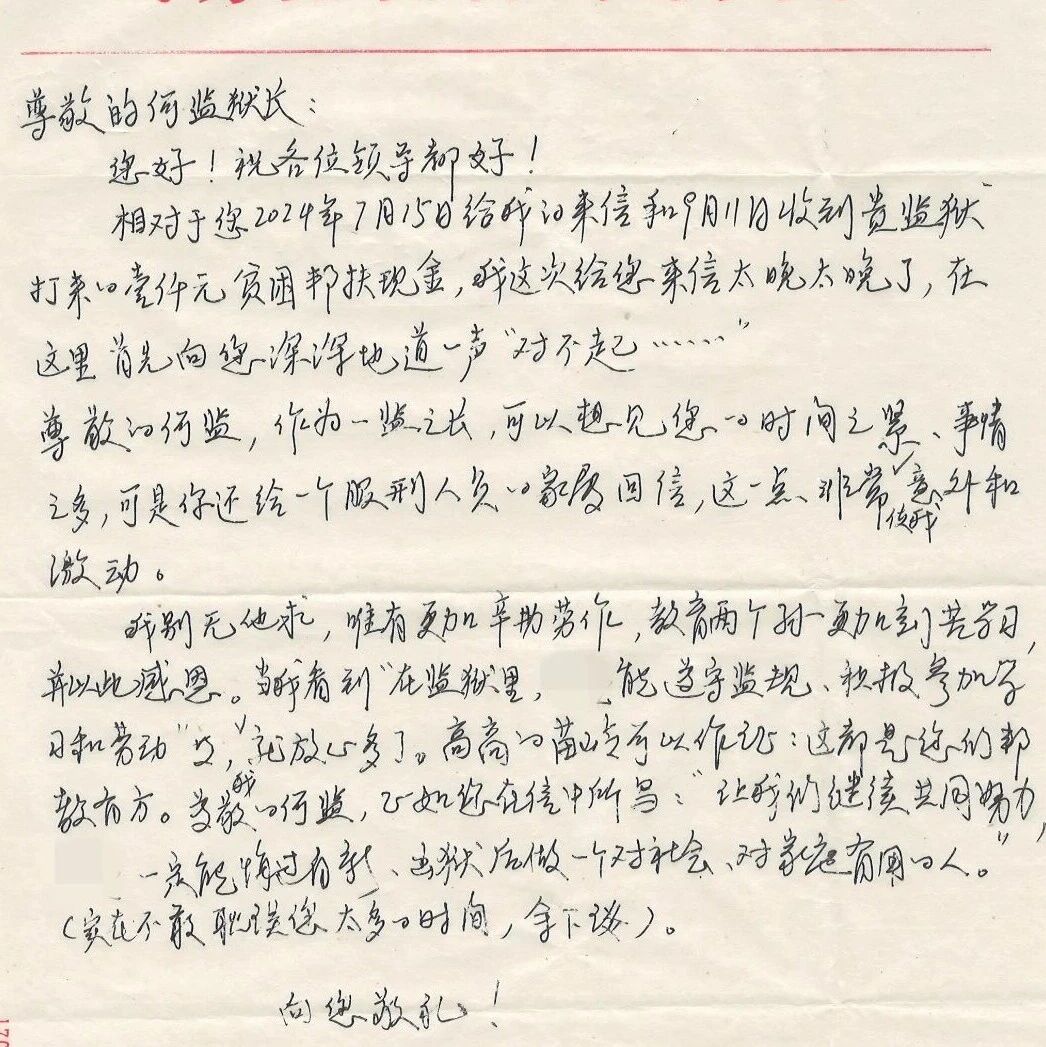 尊敬的何监狱长：
您好！祝各位领导都好！
相对于您2024年7月15日给我的来信和9月11日收到贵监狱
打来的壹仟元贫困帮扶现金，我这次给您来信太晚太晚了，在
这里首先向您深深地道一声“对不起……”
尊敬的何监，作为一监之长，可以想见您的时间之紧、事情
之多，可是你还给一个服刑人员的家属回信，这一点、非常使我意外和
激动。
我别无他求，唯有更加辛勤劳作，教育两个孙更加刻苦学习，
并以此感恩。当我看到“在监狱里，能遵守监规、积极参加学
习和劳动”时，我就放心多了。高高的苗岭可以作证：这都是您们帮
教有方。尊敬的何监，正如您在信中所写：“让我们继续共同努力，
一定能悔过自新、出狱后做一个对社会、对家庭有用的人。”
（实在不敢耽误您太多的时间，）。
向您敬礼！